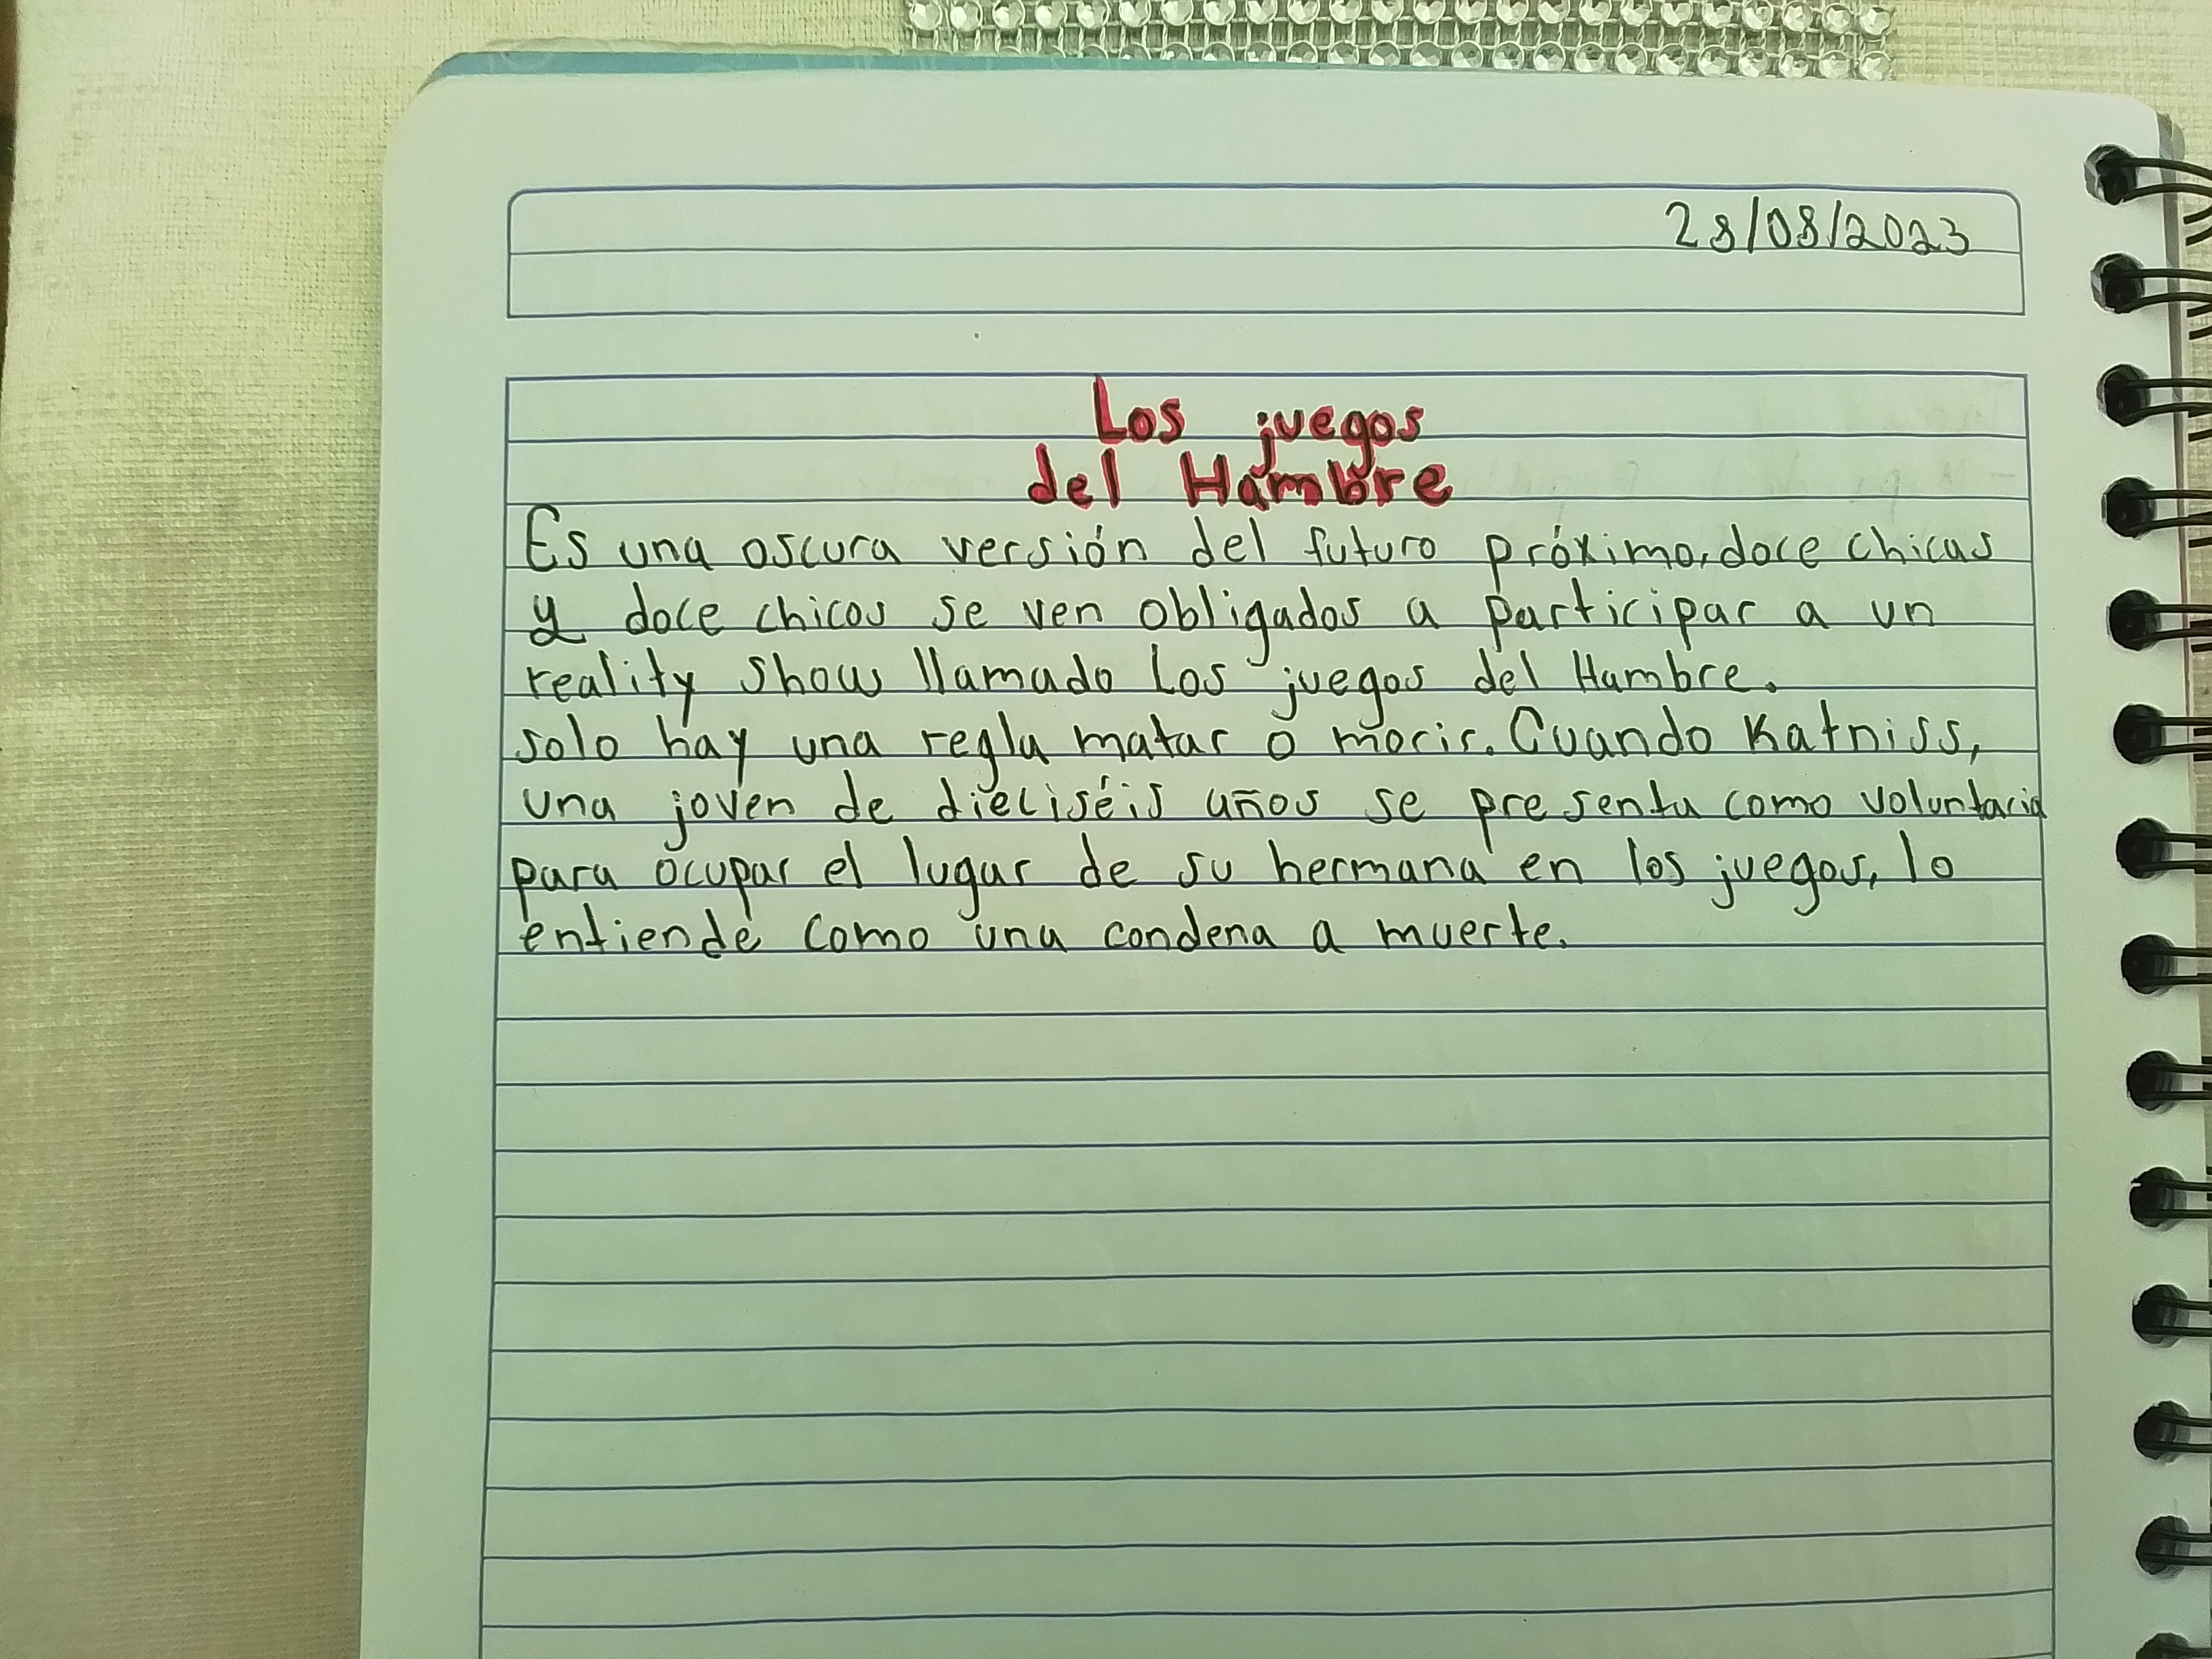 28/08/2023
Los juegos
del Hambre
Es una oscura versión del futuro próximo, doce chicas
y doce chicos se ven obligados a participar a un
reality show llamado Los juegos del Hambre.
solo hay una regla matar o morir. Cuando Katniss,
una joven de dieciséis años se presenta como voluntaria
para ocupar el lugar de su hermana en los juegos, lo
entiende como una condena a muerte.